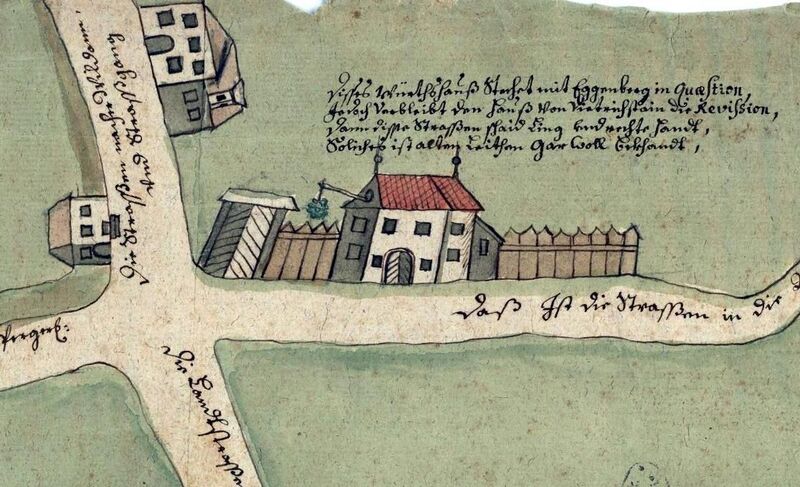 Disses Würthshauß Stehet mit Eggenberg in Quæstion,
Jedoch Verbleibt den Hauß von Dietrichstain die Revission,
Dann disse Straßen schaid Ling und rechte Handt,
Solches ist alten Leithen Gar Woll Bekhandt,
Daß Ist die Strassen in die
Die Landtstrassen
Die Strassen nacher
und Strasgang